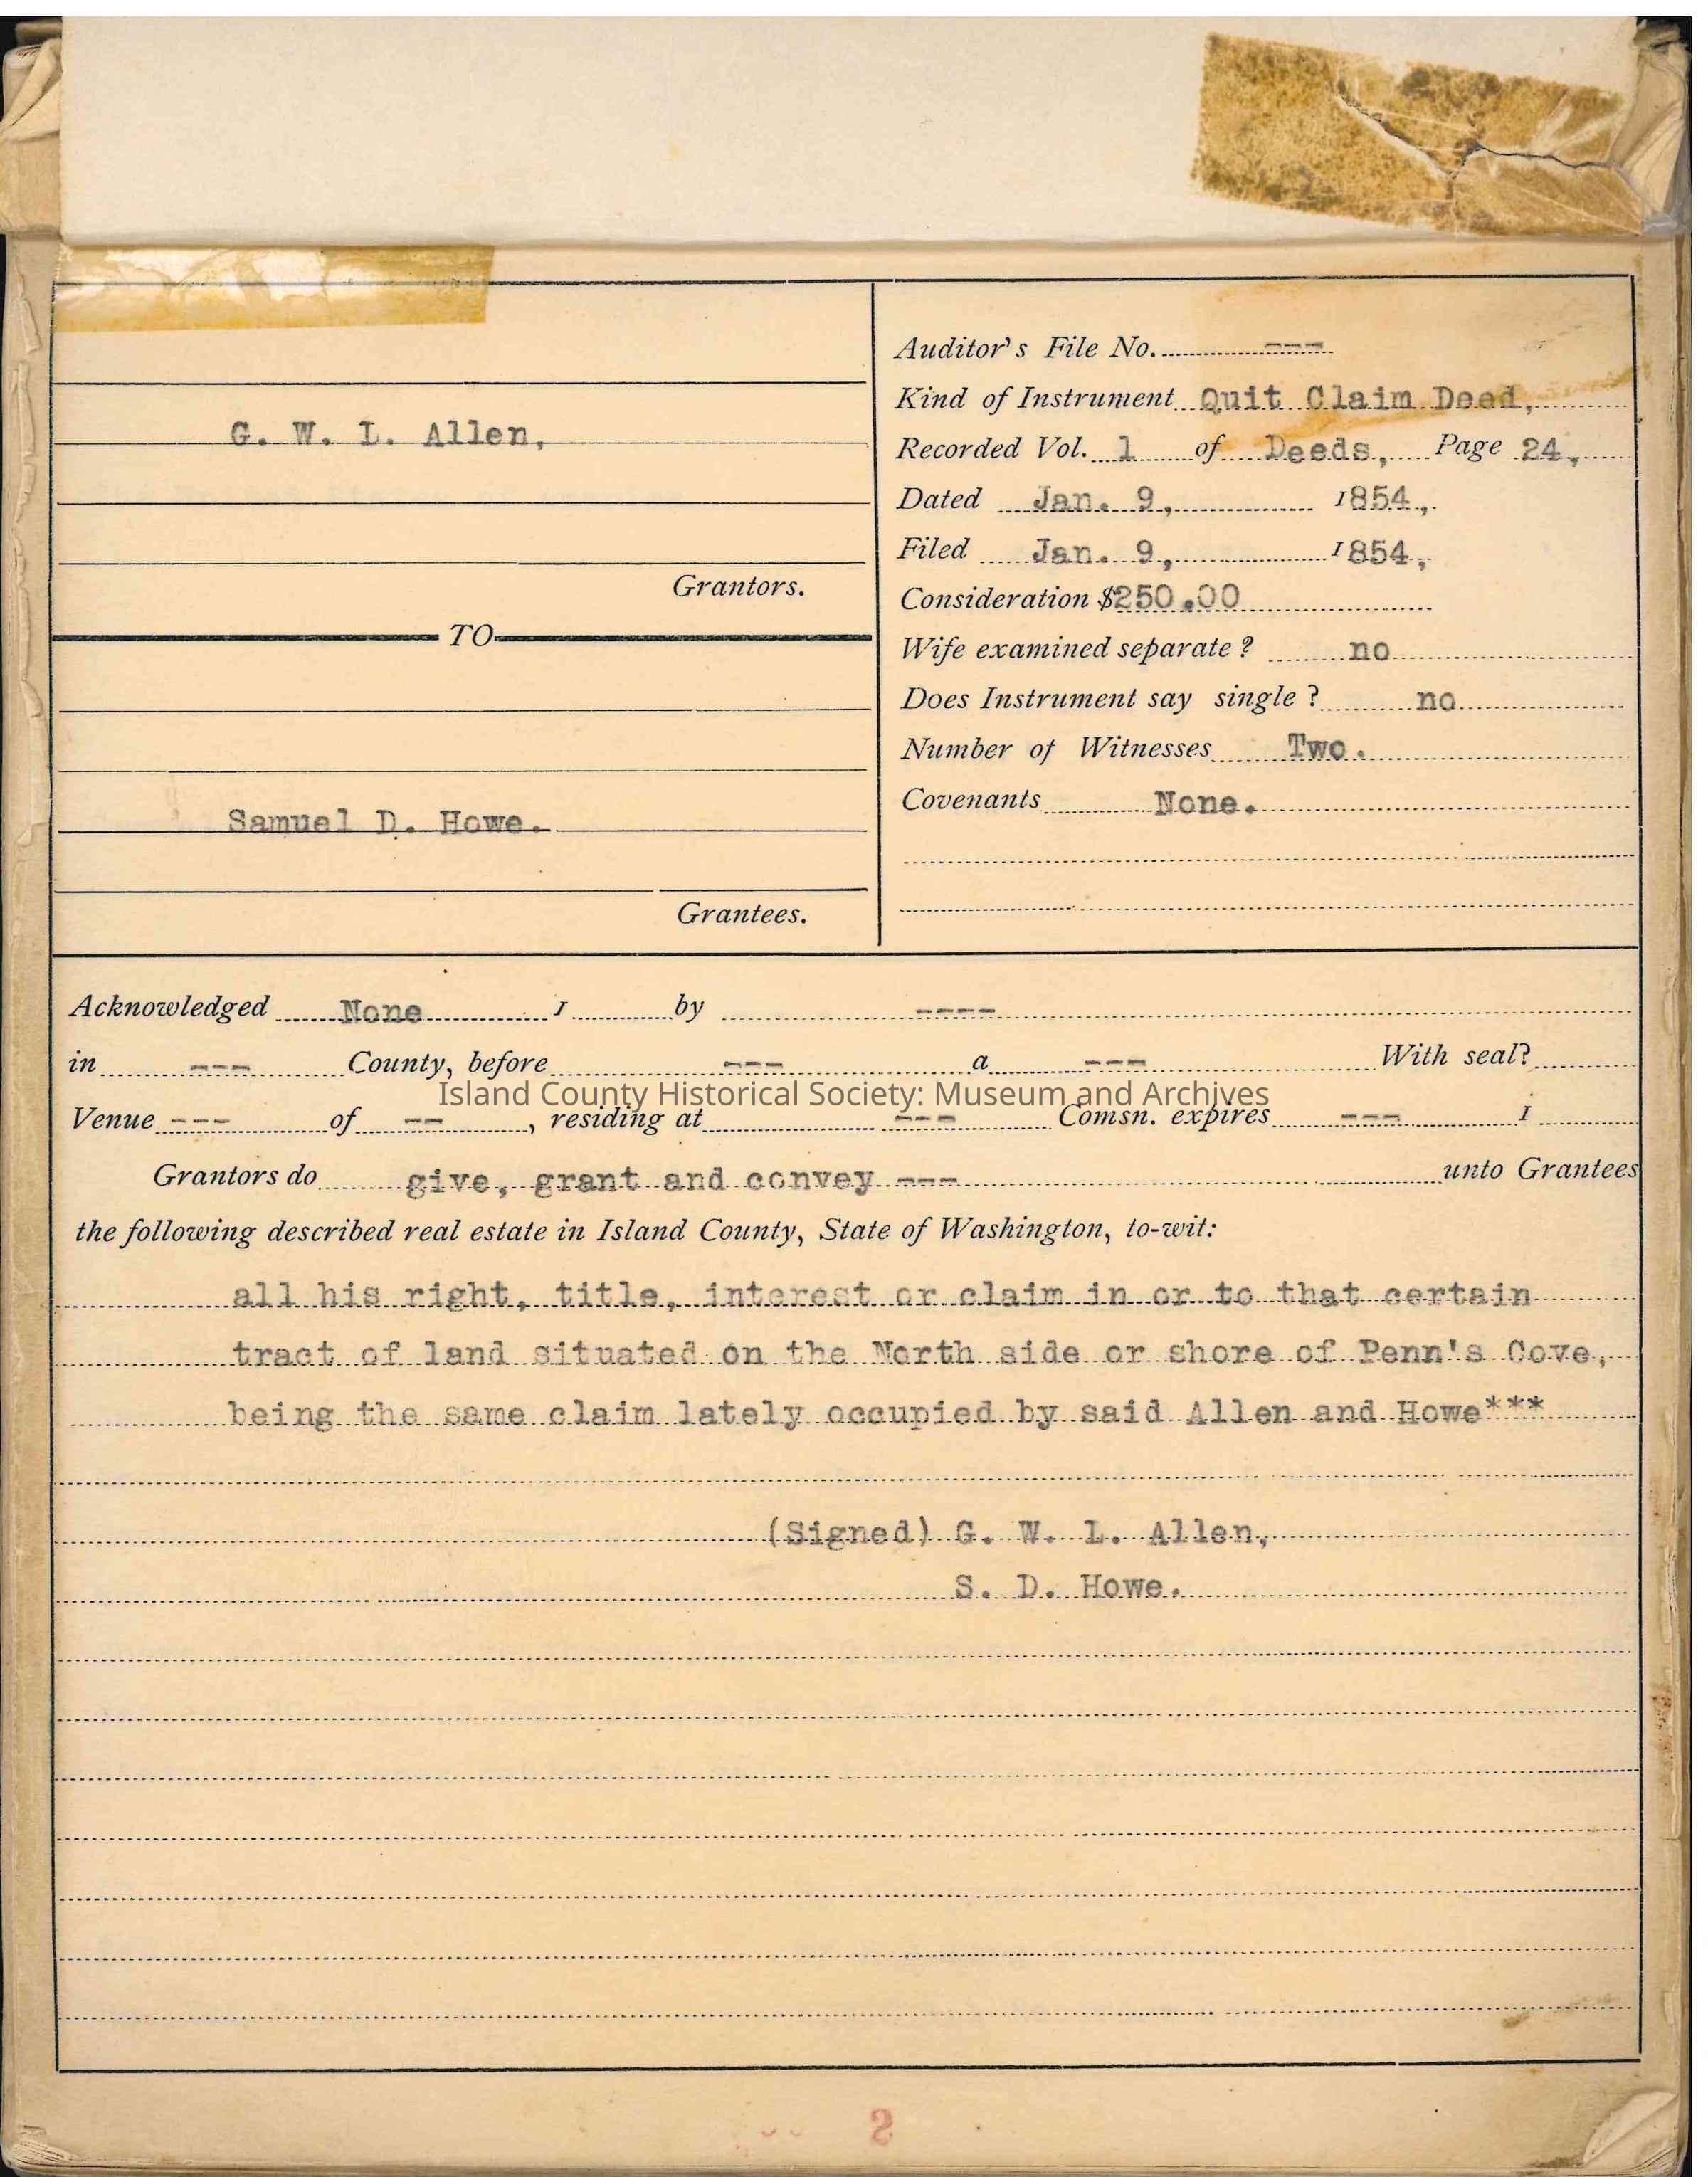 G. W. L. Allen,
Grantors.
TO
Samuel D. Howe.
Grantees.
Auditor's File No. ---
Kind of Instrument Quit Claim Deed,
Recorded Vol. 1 of Deeds, Page 24,
Dated Jan. 9, 1854,
Filed Jan. 9, 1854,
Consideration $250.00
Wife examined separate? no
Does Instrument say single? no
Number of Witnesses Two.
Covenants None.
Acknowledged None 1 by ----
in --- County, before --- a --- With seal?
Island County Historical Society: Museum and Archives
Venue --- of --, residing at --- Comsn. expires --- 1
Grantors do give, grant and convey --- unto Grantees
the following described real estate in Island County, State of Washington, to-wit:
all his right, title, interest or claim in or to that certain
tract of land situated on the North side or shore of Penn's Cove,
being the same claim lately occupied by said Allen and Howe***
(Signed) G. W. L. Allen,
S. D. Howe.
2